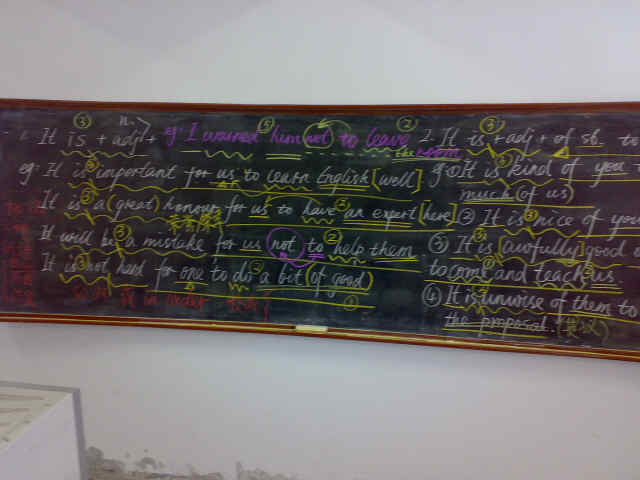 1. It is + adj/n. + eg: I warned him not to leave the room
eg: It is important for us to learn English [well]
It is a (great) honour for us to have an expert [here]
It will be a mistake for us not to help them
It is not hard for one to do a bit (of good)
in order
2. It is + adj + of sb. to
eg ① It is kind of you
much (of us)
② It is nice of you
③ It is [awfully] good
to come and teach us
④ It is unwise of them to
the proposal. (建议)